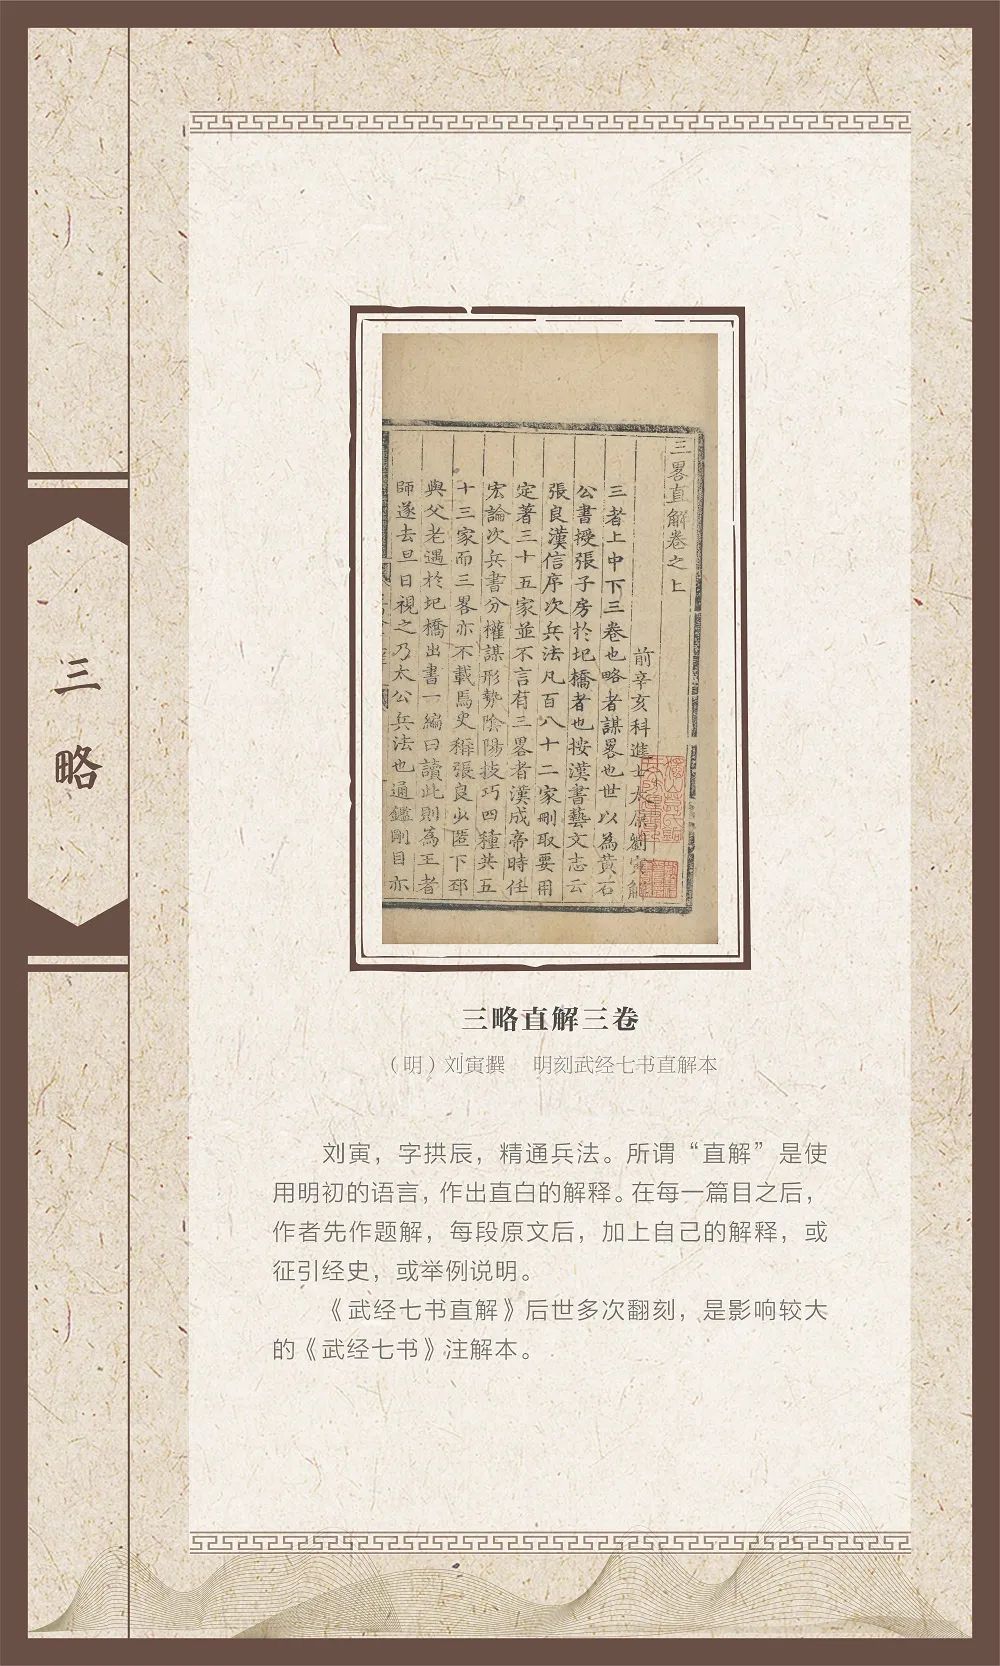 三略
三畧直解卷之上
前辛亥科進士太原劉寅解
三者上中下三卷也略者謀畧也世以為黄石
公書授張子房於圯橋者也按漢書藝文志云
張良漢信序次兵法凡百八十二家刪取要用
定著三十五家並不言有三畧者漢成帝時任
宏論次兵書分權謀形勢隂陽技巧四種共五
十三家而三畧亦不載馬史稱張良少匿下邳
與父老遇於圯橋出書一編曰讀此則為王者
師遂去旦日視之乃太公兵法也通鑑剛目亦
三略直解三卷
（明）刘寅撰 明刻武经七书直解本
刘寅，字拱辰，精通兵法。所谓“直解”是使
用明初的语言，作出直白的解释。在每一篇目之后，
作者先作题解，每段原文后，加上自己的解释，或
征引经史，或举例说明。
《武经七书直解》后世多次翻刻，是影响较大
的《武经七书》注解本。